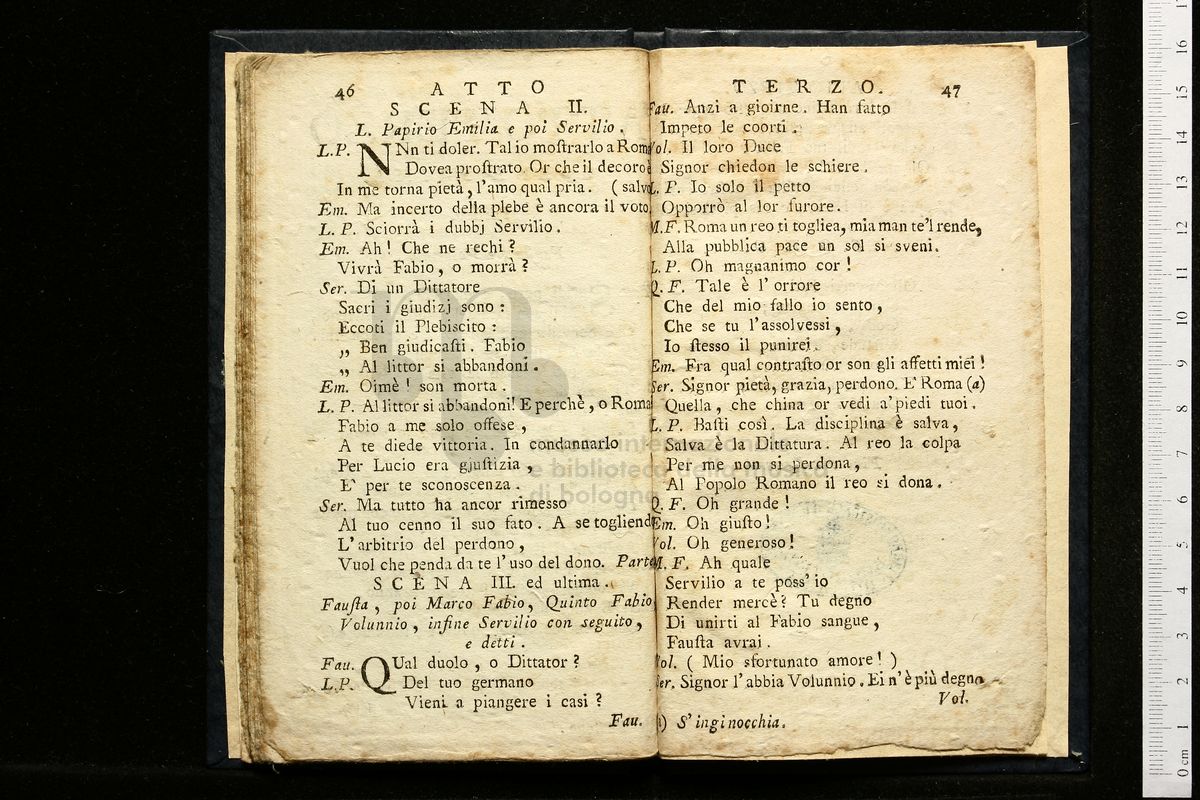 46 ATTO
SCENA II.
L. Papirio Emilia e poi Servilio.
L.P. NNn ti doler. Tal io moſtrarlo a Roma
Dovea proſtrato. Or che il decoro è
In me torna pietà, l'amo qual pria. (salvo
Em. Ma incerto della plebe è ancora il voto.
L. P. Sciorrà i dubbj Servilio.
Em. Ah! Che ne rechi?
Vivrà Fabio, o morrà?
Ser. Di un Dittatore
Sacri i giudizj sono:
Eccoti il Plebiscito:
„ Ben giudicaſti. Fabio
„ Al littor si abbandoni.
Em. Oimè! son morta.
L. P. Al littor si abbandoni! E perchè, o Roma
Fabio a me solo offese,
A te diede vittoria. In condannarlo
Per Lucio era gjuſtizia,
E' per te sconoscenza.
Ser. Ma tutto ha ancor rimesso
Al tuo cenno il suo fato. A se togliend
L'arbitrio del perdono,
Vuol che penda da te l'uso del dono. Parte
SCENA III. ed ultima.
Fauſta, poi Marco Fabio, Quinto Fabio
Volunnio, infine Servilio con seguito,
e detti.
Fau. QUal duolo, o Dittator?
L.P. Del tuo germano
Vieni a piangere i casi?
Fau.
TERZO. 47
Fau. Anzi a gioirne. Han fatto
Impeto le coorti.
Vol. Il loro Duce
Signor chiedon le schiere.
L. P. Io solo il petto
Opporrò al lor furore.
M.F. Roma un reo ti togliea, mia man te'l rende,
Alla pubblica pace un sol si sveni.
L. P. Oh magnanimo cor!
Q. F. Tale è l'orrore
Che del mio fallo io sento,
Che se tu l'assolvessi,
Io ſtesso il punirei.
Em. Fra qual contraſto or son gli affetti miei!
Ser. Signor pietà, grazia, perdono. E' Roma (a)
Quella, che china or vedi a'piedi tuoi.
L. P. Baſti così. La disciplina è salva,
Salva è la Dittatura. Al reo la colpa
Per me non si perdona,
Al Popolo Romano il reo si dona.
Q. F. Oh grande!
Em. Oh giuſto!
Vol. Oh generoso!
M. F. Ah quale
Servilio a te poss'io
Render mercè? Tu degno
Di unirti al Fabio sangue,
Fauſta avrai.
Vol. (Mio sfortunato amore!)
Ser. Signor l'abbia Volunnio. Ei n'è più degno
Vol.
(a) S'inginocchia.
e biblioteca della musica
di bologna
0 cm 1 2 3 4 5 6 7 8 9 10 11 12 13 14 15 16